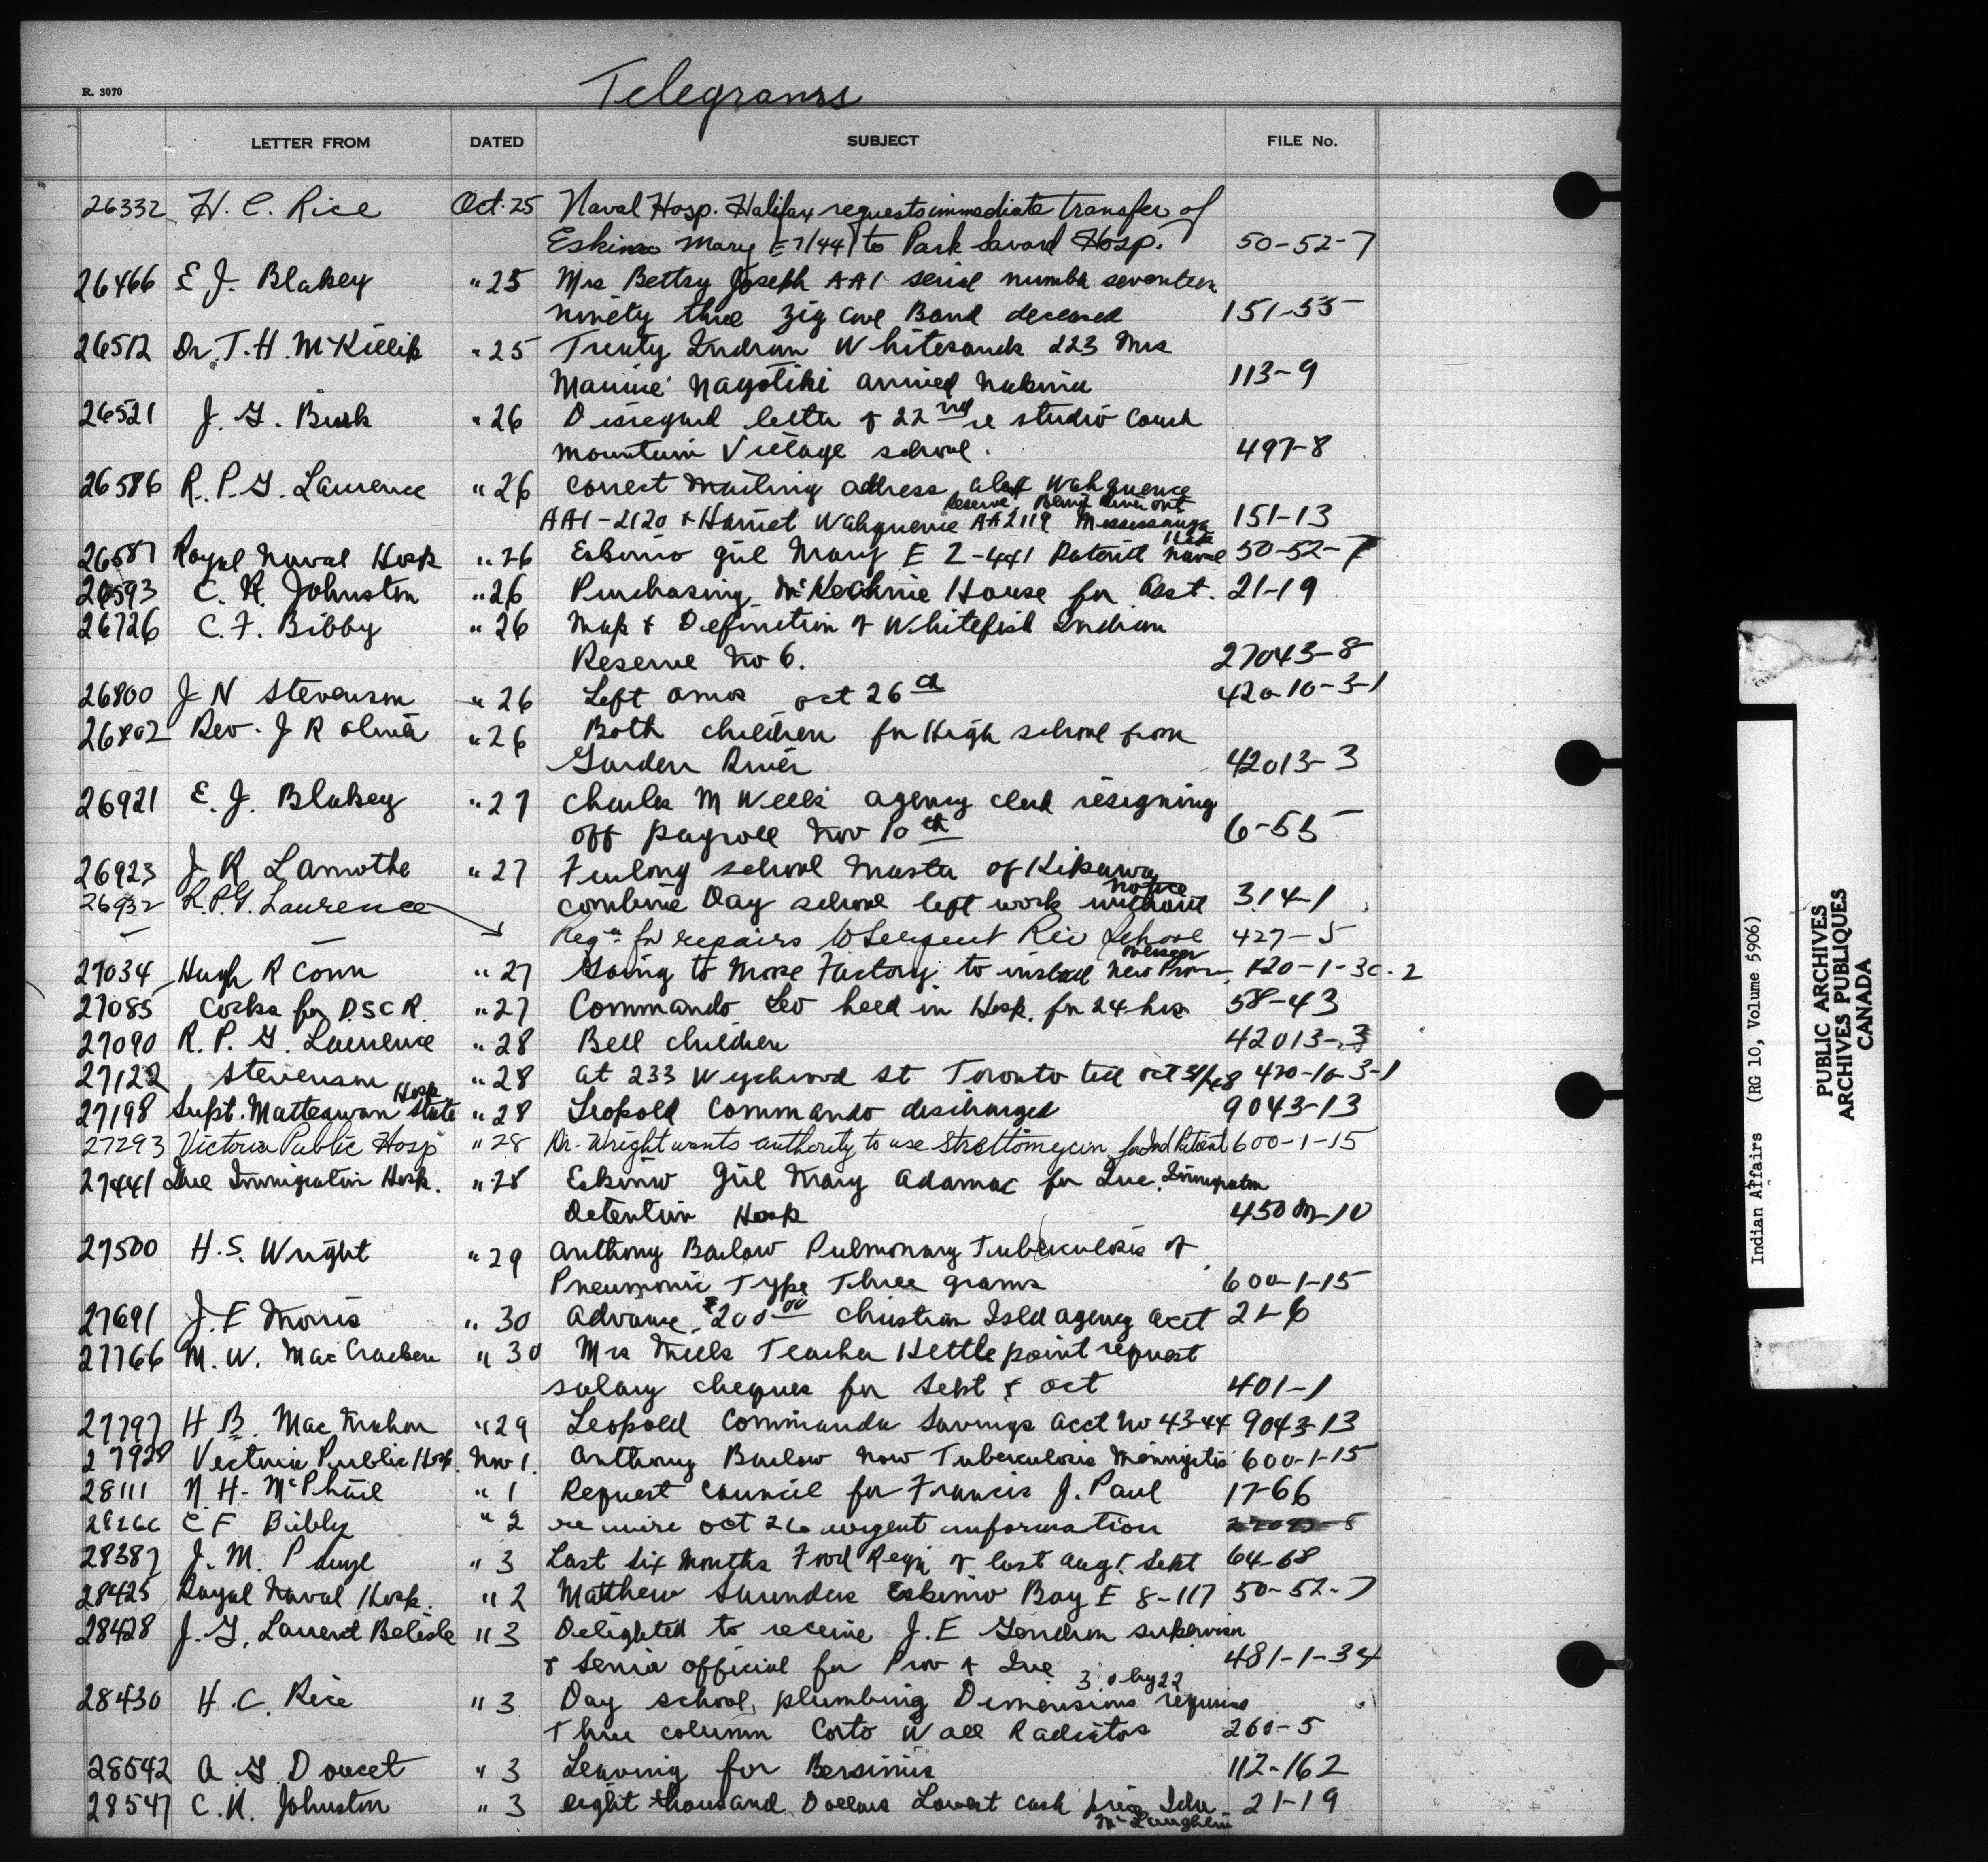 Telegrams
R. 3070
LETTER FROM DATED SUBJECT FILE No.
26332 H. C. Rice Oct. 25 Naval Hosp. Halifax requests immediate transfer of
Eskimo Mary E7/441 to Park Savard Hosp. 50-52-7
26466 E J. Blakey " 25 Mrs Bettsy Joseph AA1 serial number seventeen
ninety three Band deceased 151-55
26512 Dr. T. H. McKillip " 25 Treaty Indian Whitesands 223 Mrs
arrived Nakina 113-9
26521 J. G. Burk " 26 Disregard letter of 22nd re studio couch
Mountain Village school. 497-8
26586 R. P. G. Laurence " 26 Correct mailing address Wahquence
Reserve Blind River Ont
AA1-2120 & Harriet Wahquence AA2119 Mississauga 151-13
26587 Royal Naval Hosp " 26 Eskimo girl Mary E 7-441 Patient Naval Hosp 50-52-7
26593 C. H. Johnston " 26 Purchasing McKechnie House for Asst. 21-19
26726 C. F. Bibby " 26 Map & Definition of Whitefish Indian
Reserve No 6. 27043-8
26800 J N Stevenson " 26 Left Amos Oct 26th 420-10-3-1
26802 Rev. J R Oliver " 26 Both children for High school from
Garden River 42013-3
26921 E. J. Blakey " 27 Charles M Weeks agency clerk resigning
off payroll Nov 10th 6-55
26923 J R Lamothe " 27 Furlong school master of Kipawa
notice
combine Day school left work without 314-1
26932 R.P.G. Laurence Reqn for repairs to Serpent Riv School 427-5
27034 Hugh R Conn " 27 Going to Moose Factory to install new 420-1-3C-2
27085 Cocks for D.S.C.R. " 27 Commando Leo held in Hosp. for 24 hrs 58-43
27090 R. P. G. Laurence " 28 Bell children 42013-3
27122 Stevenson " 28 at 233 Wychwood St Toronto till Oct 31/48 420-10-3-1
27198 Supt. Matteawan State Hosp " 28 Leopold Commando discharged 9043-13
27293 Victoria Public Hosp " 28 Dr. Wright wants authority to use Streptomycin for Ind Patient 600-1-15
27441 Que Immigration Hosp. " 28 Eskimo Girl Mary Adamac for Que. Immigration
Detention Hosp 450M-10
27500 H. S. Wright " 29 Anthony Barlow Pulmonary Tuberculosis of
Pneumonic Type Three grams 600-1-15
27691 J. F Morris " 30 Advance $200.00 Christian Isld agency acct 21-6
27766 M. W. MacCracken " 30 Mrs Mills Teacher Kettle point request
salary cheques for Sept & Oct 401-1
27797 H B. MacMahon " 29 Leopold Commanda Savings Acct No 43-44 9043-13
27928 Victoria Public Hosp. Nov 1. Anthony Barlow now Tuberculosis Meningitis 600-1-15
28111 N. H. McPhail " 1 Request council for Francis J. Paul 17-66
28266 C F Bibby " 2 re wire Oct 26 urgent information 27043-8
28387 J. M. " 3 Last six months Food Reqn of last Aug & Sept 64-68
28425 Royal Naval Hosp. " 2 Matthew Saunders Eskimo Boy E 8-117 50-52-7
28428 J. G. Laurent Belisle " 3 Delighted to receive J. E Gendron supervisor
& Senior official for Prov of Que 481-1-34
30 by 22
28430 H. C. Rice " 3 Day school, plumbing Dimensions requires
Three column Corto Wall Radiators 260-5
28542 A. G. Doucet " 3 Leaving for Bersimis 112-162
28547 C. H. Johnston " 3 eight thousand Dollars Lowest cash price John 21-19
McLaughlin
Indian Affairs (RG 10, Volume 5906)
PUBLIC ARCHIVES
ARCHIVES PUBLIQUES
CANADA